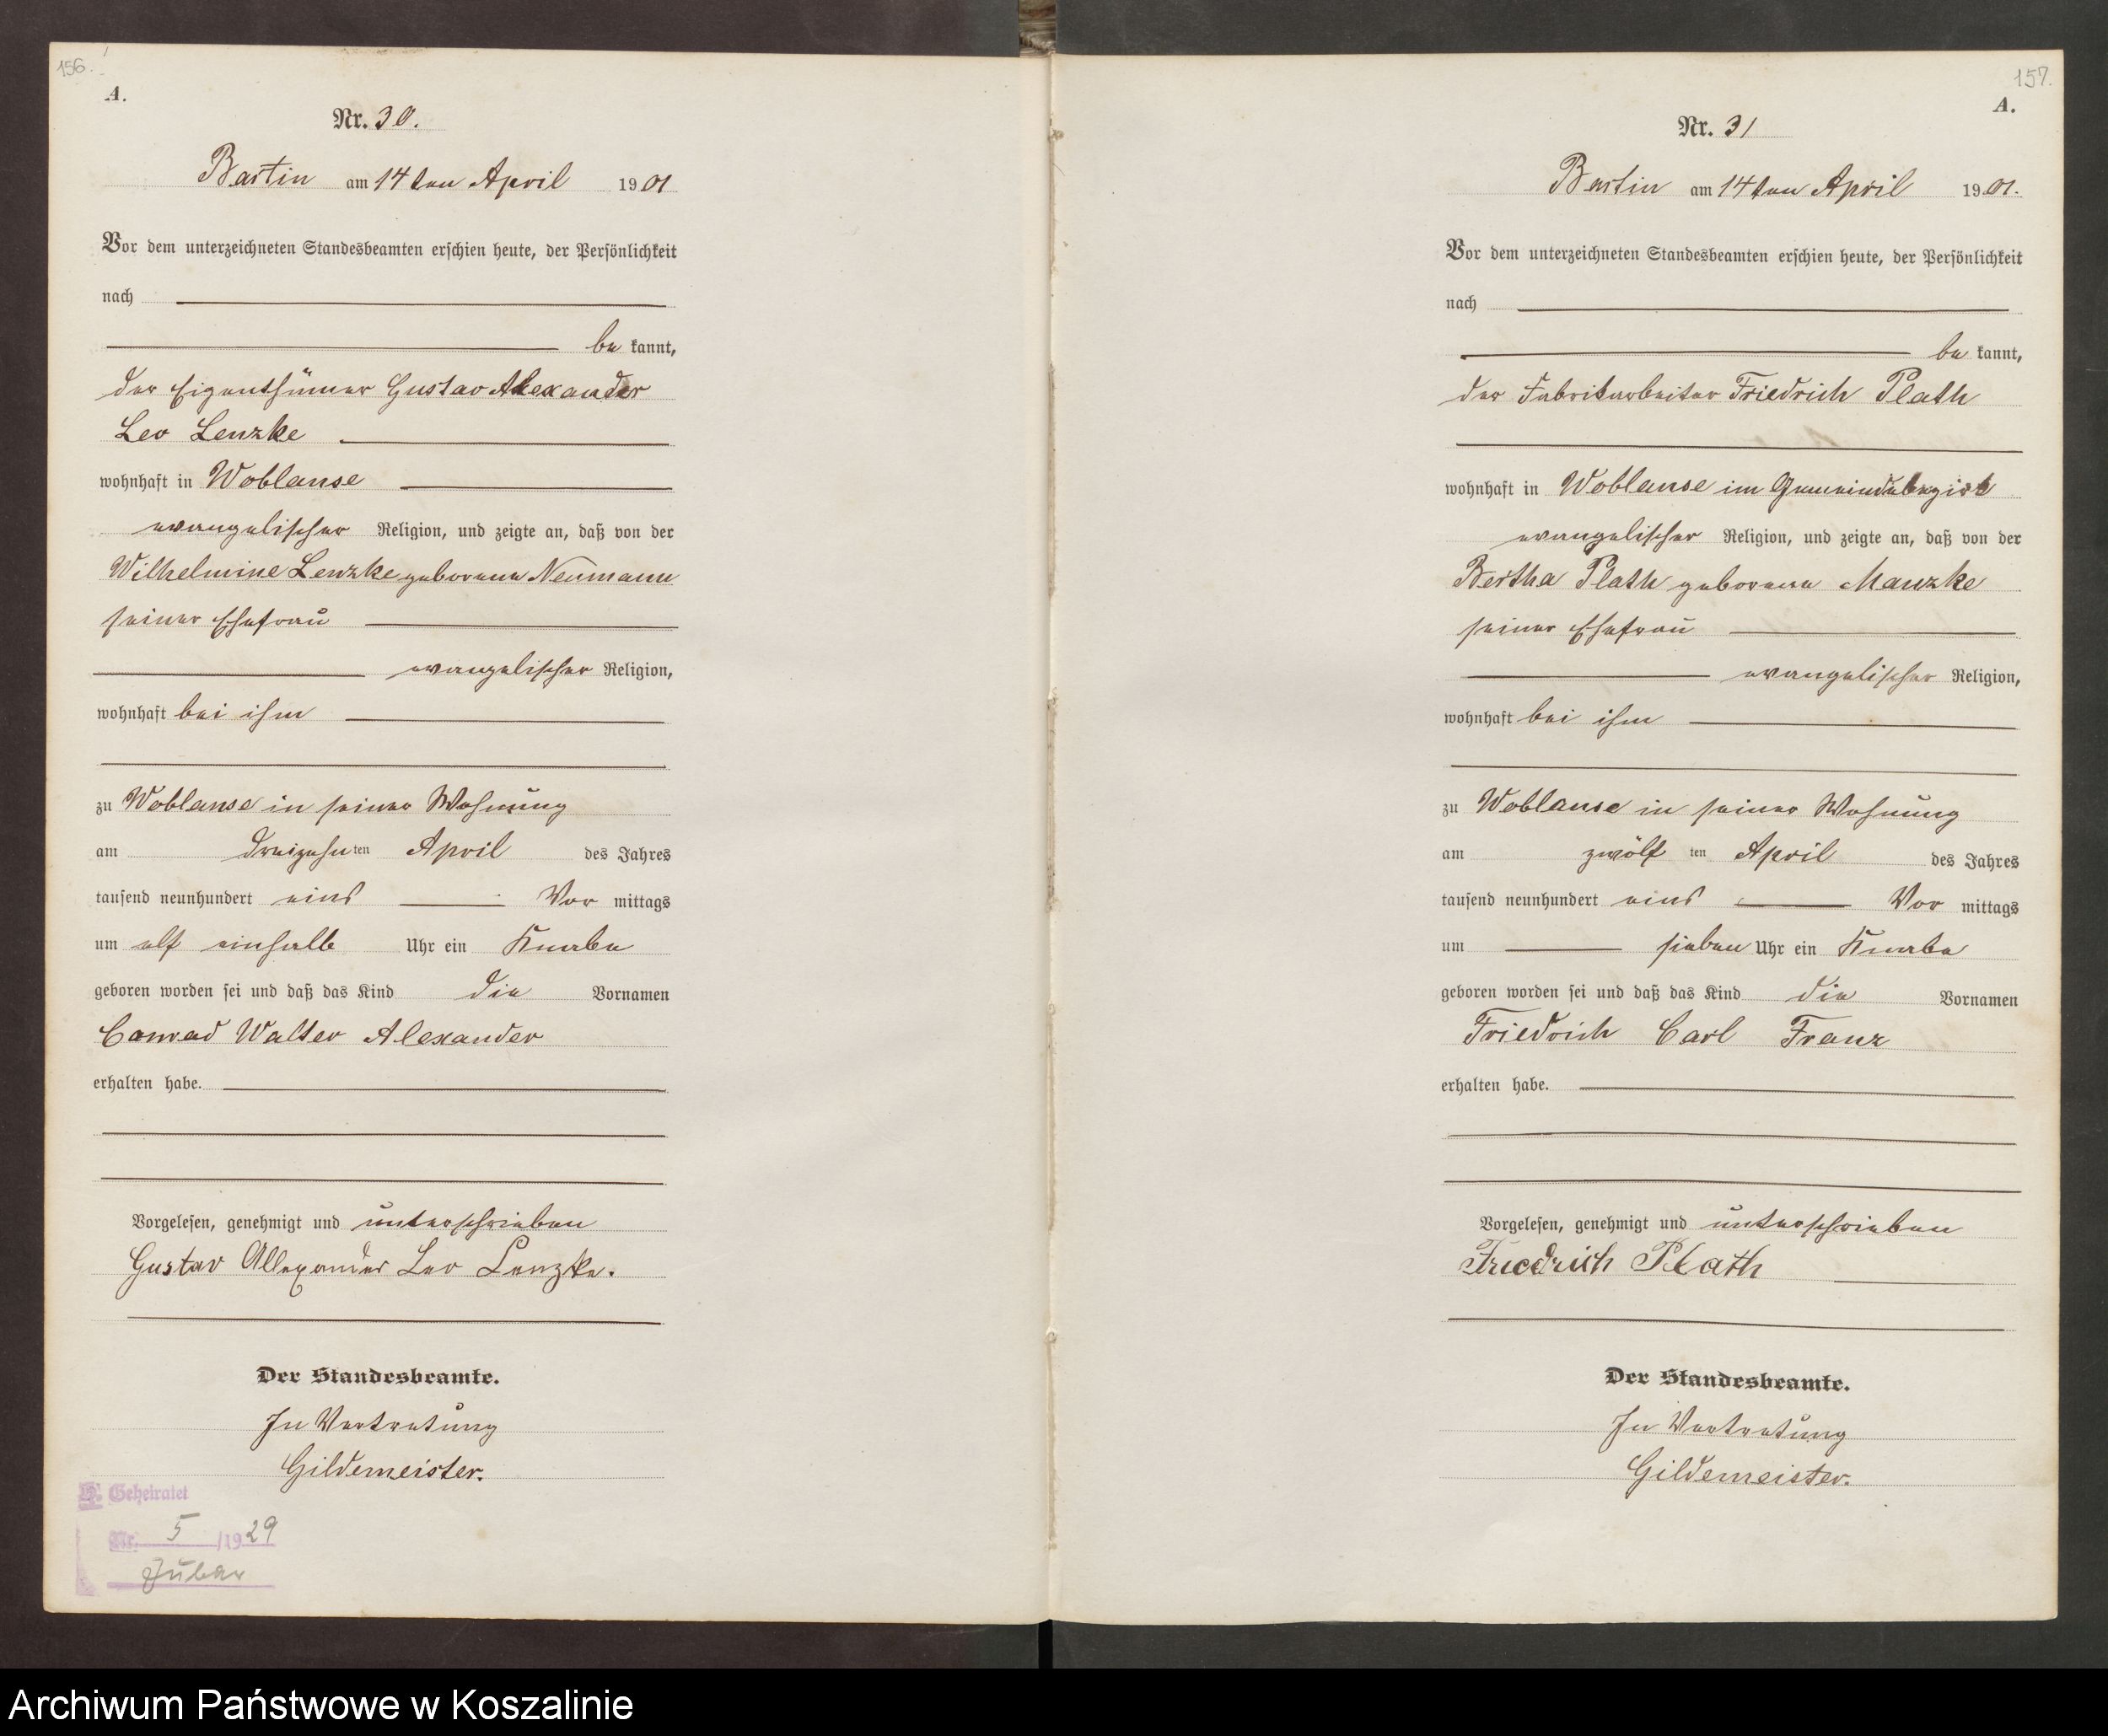 156.
A.
Nr. 30.
Bartin am 14ten April 1901
Vor dem unterzeichneten Standesbeamten erschien heute, der Persönlichkeit
nach
bekannt,
der Eigenthümer Gustav Alexander
Leo Lenzke
wohnhaft in Woblanse
evangelischer Religion, und zeigte an, daß von der
Wilhelmine Lenzke geborene Neumann
seiner Ehefrau
evangelischer Religion,
wohnhaft bei ihm
zu Woblanse in seiner Wohnung
am dreizehnten April des Jahres
tausend neunhundert eins Vormittags
um elf einhalb Uhr ein Knabe
geboren worden sei und daß das Kind die Vornamen
Conrad Walter Alexander
erhalten habe.
Vorgelesen, genehmigt und unterschrieben
Gustav Allexander Leo Lenzke.
Der Standesbeamte.
In Vertretung
Gildemeister.
Geheiratet
Nr. 5/1929
157.
A.
Nr. 31
Bartin am 14ten April 1901.
Vor dem unterzeichneten Standesbeamten erschien heute, der Persönlichkeit
nach
bekannt,
der Fabrikarbeiter Friedrich Plath
wohnhaft in Woblanse im Gemeindebezirk
evangelischer Religion, und zeigte an, daß von der
Bertha Plath geborene Manzke
seiner Ehefrau
evangelischer Religion,
wohnhaft bei ihm
zu Woblanse in seiner Wohnung
am zwölften April des Jahres
tausend neunhundert eins Vormittags
um sieben Uhr ein Knabe
geboren worden sei und daß das Kind die Vornamen
Friedrich Carl Franz
erhalten habe.
Vorgelesen, genehmigt und unterschrieben
Friedrich Plath
Der Standesbeamte.
In Vertretung
Gildemeister.
Archiwum Państwowe w Koszalinie